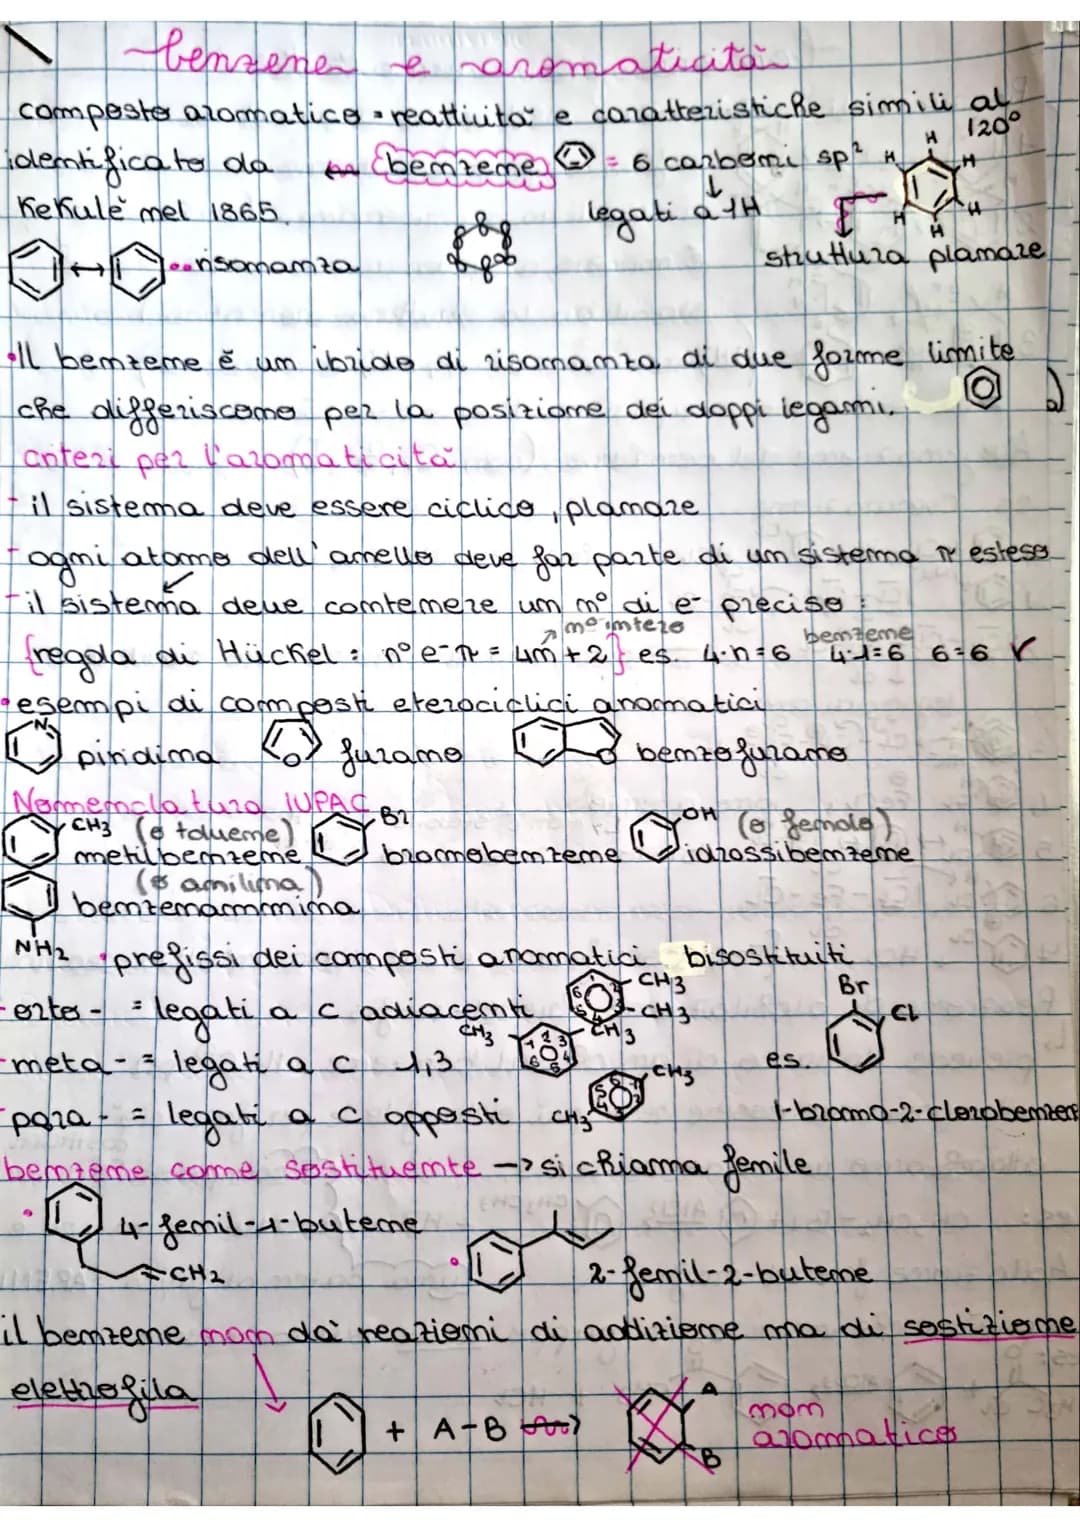 benzene e aromaticità
composto aromatico • reattività e caratteristiche simili al
120°
identificato da benzene = 6 carboni sp²
Kekulé nel 1865. legati a 1H
H H H H H H
struttura planare
risonanza
•Il benzene è un ibrido di risonanza di due forme limite
che differiscono per la posizione dei doppi legami.
criteri per l'aromaticità
- il sistema deve essere ciclico, planare
- ogni atomo dell'anello deve far parte di un sistema π esteso
- il sistema deve contenere un n° di e- preciso :
n° intero benzene
{regola di Hückel : n° e-π = 4n+2} es. 4·n=6 4·1=6 6=6 ✓
•esempi di composti eterociclici aromatici
N piridina O furano O benzofurano
Nomenclatura IUPAC
CH3 (o toluene) Br OH (o fenolo)
metilbenzene bromobenzene idrossibenzene
(o anilina)
benzenammina
NH2 •prefissi dei composti aromatici bisostituiti
CH3 Br
- orto- = legati a c adiacenti CH3 Cl
CH3 CH3
- meta- = legati a c 1,3 es.
CH3
- para- = legati a c opposti CH3 1-bromo-2-clorobenzen
benzene come sostituente -> si chiama fenile
• 4-fenil-1-butene
=CH2 • 2-fenil-2-butene
il benzene non dà reazioni di addizione ma di sostizione
elettrofila
+ A-B A B non
aromatico